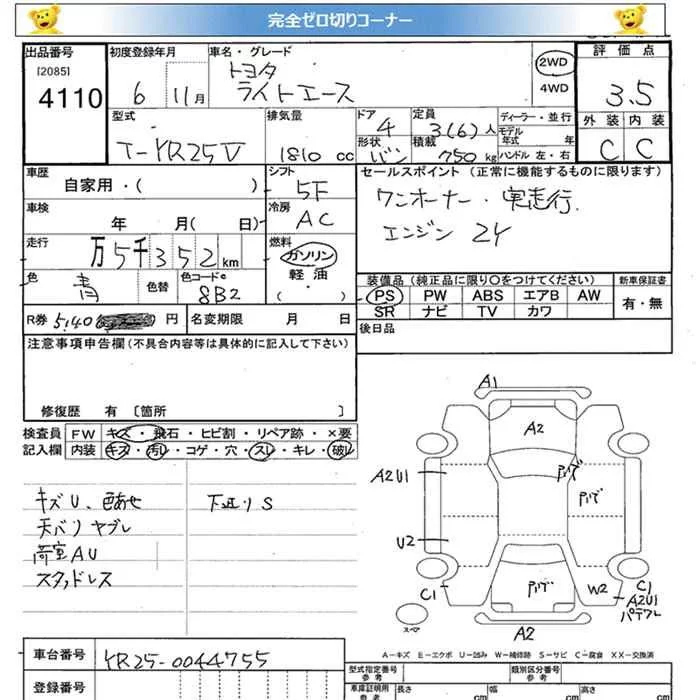 完全ゼロ切りコーナー
出品番号
[2085]
4110
初度登録年月
6 11月
車名・グレード
トヨタ
ライトエース
2WD
4WD
評価点
3.5
外装 内装
C C
型式
T-YR25V
排気量
1810 cc
ドア
4
形状
バン
定員
3(6)人
積載
750kg
ディーラー・並行
モデル年式 年
ハンドル 左・右
車歴
自家用・( )
シフト
5F
セールスポイント (正常に機能するものに限ります)
ワンオーナー・実走行.
エンジン 2Y
車検
年 月( 日)
冷房
AC
走行
万5千352km
燃料
ガソリン
軽油
( ・ )
色
青
色替
色コード
8B2
装備品 (純正品に限り○をつけてください)
PS PW ABS エアB AW
SR ナビ TV カワ
新車保証書
有・無
R券 5,40 円
名変期限 月 日
後日品
注意事項申告欄 (不具合内容等は具体的に記入して下さい)
修復歴 有 〔箇所 〕
検査員記入欄
FW キズ・飛石・ヒビ割・リペア跡・×要
内装 キズ・汚レ・コゲ・穴・スレ・キレ・破レ
キズU、色あせ
天バリヤブレ
荷室AU
スタッドレス
下廻りS
A1
A2
A2U1
U2
C1
W2
C1
A2U1
A2
スペア
A－キズ E－エクボ U－凹み W－補修跡 S－サビ C－腐食 XX－交換済
車台番号
YR25-0044755
登録番号
型式指定番号
参考
類別区分番号
参考
車庫証明用
参考
長さ cm
幅 cm
高さ cm